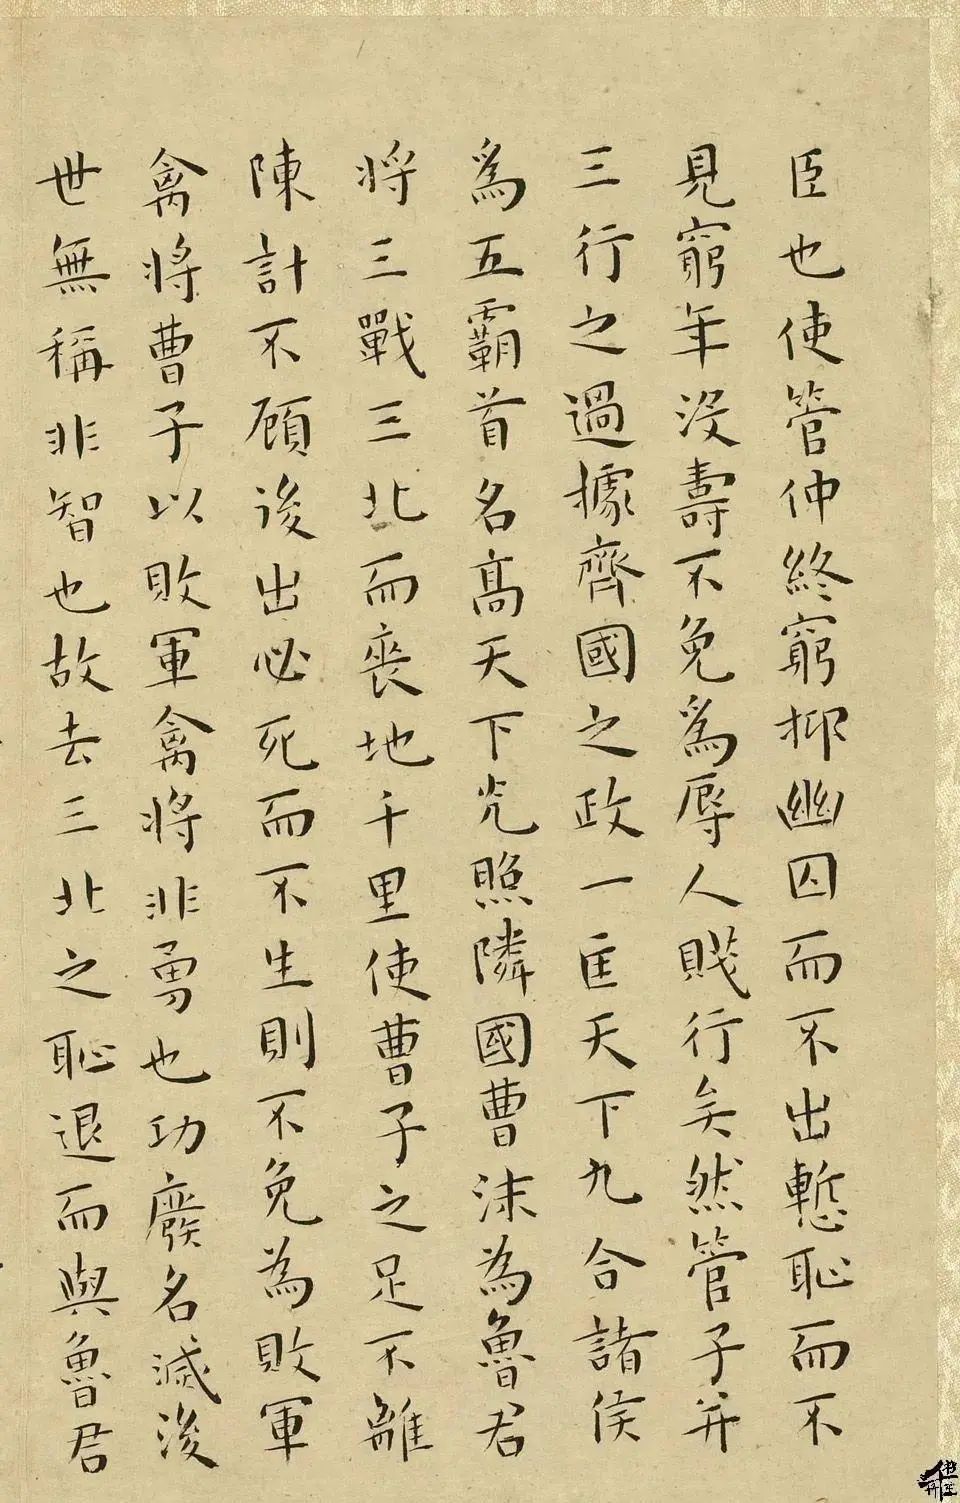 臣也使管仲終窮抑幽囚而不出慙恥而不
見窮年沒壽不免爲辱人賤行矣然管子并
三行之過據齊國之政一匡天下九合諸侯
爲五霸首名高天下光照隣國曹沫為魯君
將三戰三北而喪地千里使曹子之足不離
陳計不顧後出必死而不生則不免為敗軍
禽將曹子以敗軍禽將非勇也功廢名滅後
世無稱非智也故去三北之恥退而與魯君